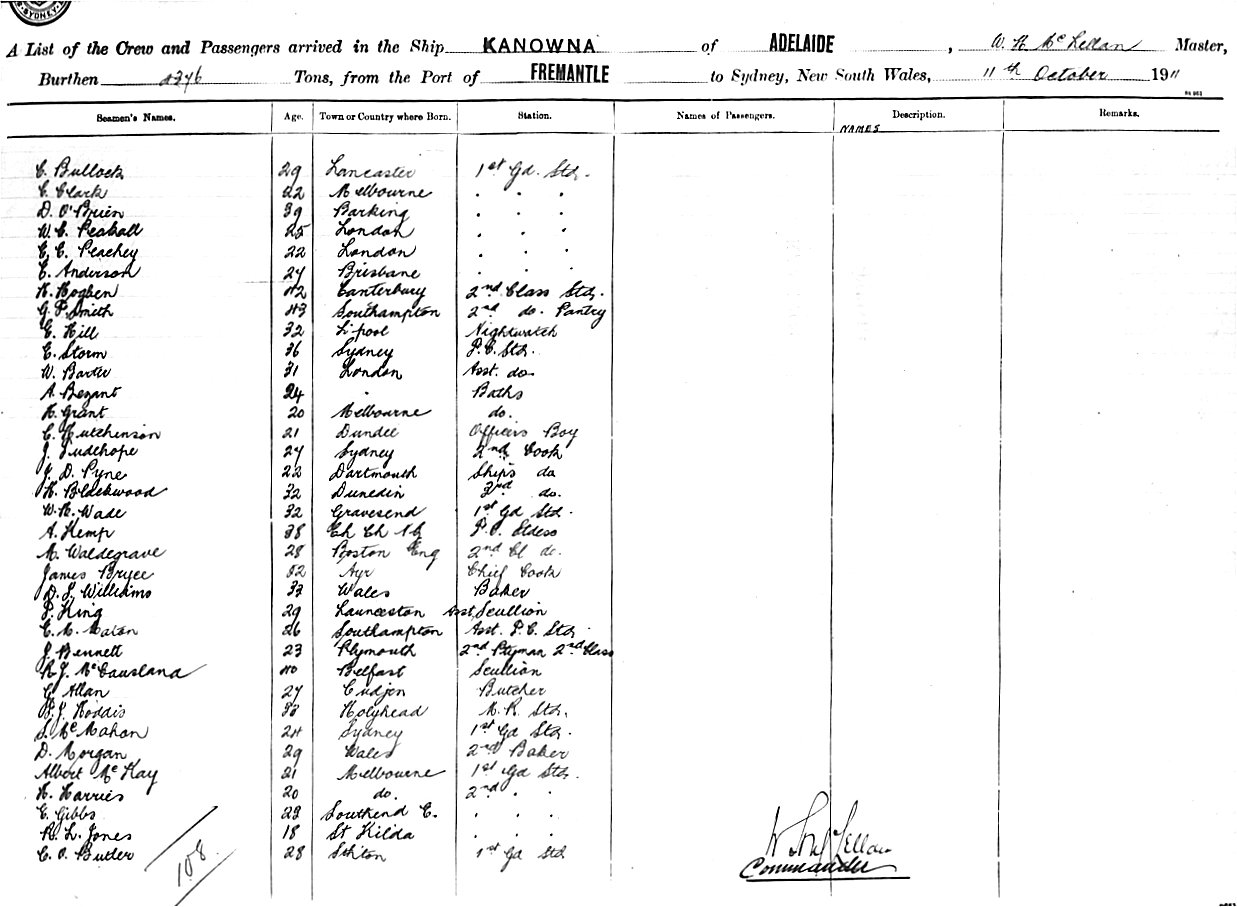 SYDNEY
A List of the Crew and Passengers arrived in the Ship KANOWNA of ADELAIDE, W. H. McLellan Master,
Burthen Tons, from the Port of FREMANTLE to Sydney, New South Wales, 11th October 1911
Seamen's Names. Age. Town or Country where Born. Station. Names of Passengers. Description. Remarks.
NAMES
C. Bullock 29 Lancaster 1st Gd. Std.
C. Clark 22 Melbourne . . .
D. O'Brien 39 Barking . . .
W. C. Peakall 25 London . . .
E. C. Peachey 22 London . . .
C. Anderson 27 Brisbane . . .
H. Hogben 42 Canterbury 2nd Class Std.
G. P. Smith 43 Southampton 2nd do. Pantry
E. Hill 32 L'pool Nightwatch
E. Storm 36 Sydney P.C. Std.
W. Barter 31 London Asst. do.
A. Bezant 24 . Baths
H. Grant 20 Melbourne do.
C. Hutchinson 21 Dundee Officers Boy
J. Tudehope 27 Sydney 2nd Cook
J. D. Pyne 22 Dartmouth Ships do
H. Blackwood 32 Dunedin 3rd do.
W. H. Wade 32 Gravesend 1st Gd Std.
A. Kemp 38 Ch Ch N Z
M. Waldegrave 28 Boston Eng 2nd Cl do.
James Bryce 52 Ayr Chief Cook
D. J. Williams 33 Wales Baker
P. King 29 Launceston Asst. Scullion
E. M. Maton 26 Southampton Asst. P.C. Std.
J. Bennett 23 Plymouth 2nd Ptyman 2nd Class
R. J. McCausland 40 Belfast Scullion
C. Allan 27 Cudjen Butcher
Hoddis 33 Holyhead M. R. Std.
S. McMahon 24 Sydney 1st Gd Std.
D. Morgan 29 Wales 2nd Baker
Albert McKay 21 Melbourne 1st Gd Std.
H. Harries 20 do. 2nd . .
E. Gibbs 23 Southend E. . . .
R. L. Jones 18 St Kilda . . .
C. O. Butler 28 1st Gd Std
108
Commander